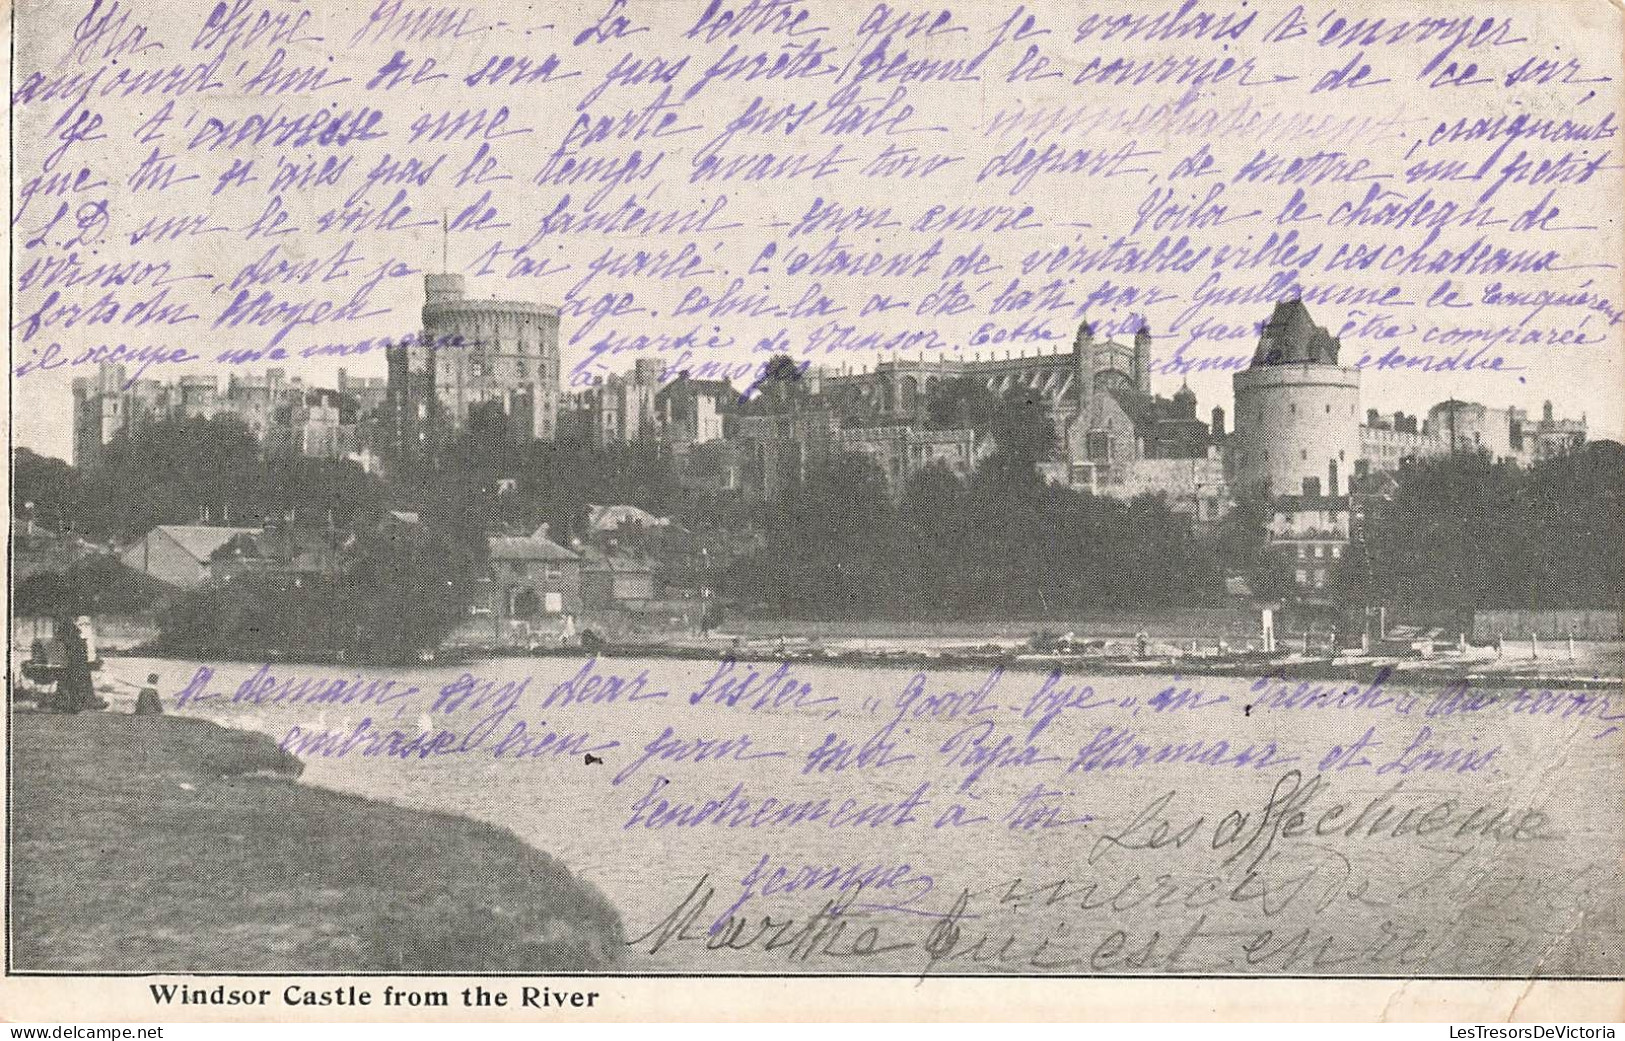 Ma chère Anne - La lettre que je voulais t'envoyer
aujourd'hui ne sera pas prête pour le courrier de ce soir,
je t'adresse une carte postale immediatement, craignant
que tu n'aies pas le temps, avant ton depart, de mettre un petit
L.D. sur le voile de fauteuil - mon œuvre - Voila le château de
Winsor, dont je t'ai parlé. C'etaient de véritables villes ces chateaux
forts du Moyen age. Celui-la a été bati par Guillaume le Conquérent
il occupe une partie de Winsor. Cette ville peut être comparée
à Limoges comme étendue.
A demain, my dear Sister, "Good-bye", in French "Au revoir,
embrasse bien pour moi Papa Maman et Louis.
Tendrement à toi
Jeanne
Les affectueux
mercis de
Marthe qui est en
Windsor Castle from the River
LesTresorsDeVictoria